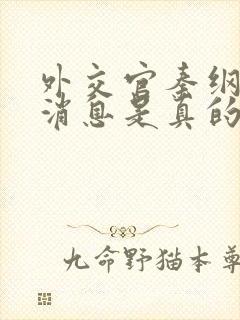 外交官秦纲
消息是真的
九命野猫本尊